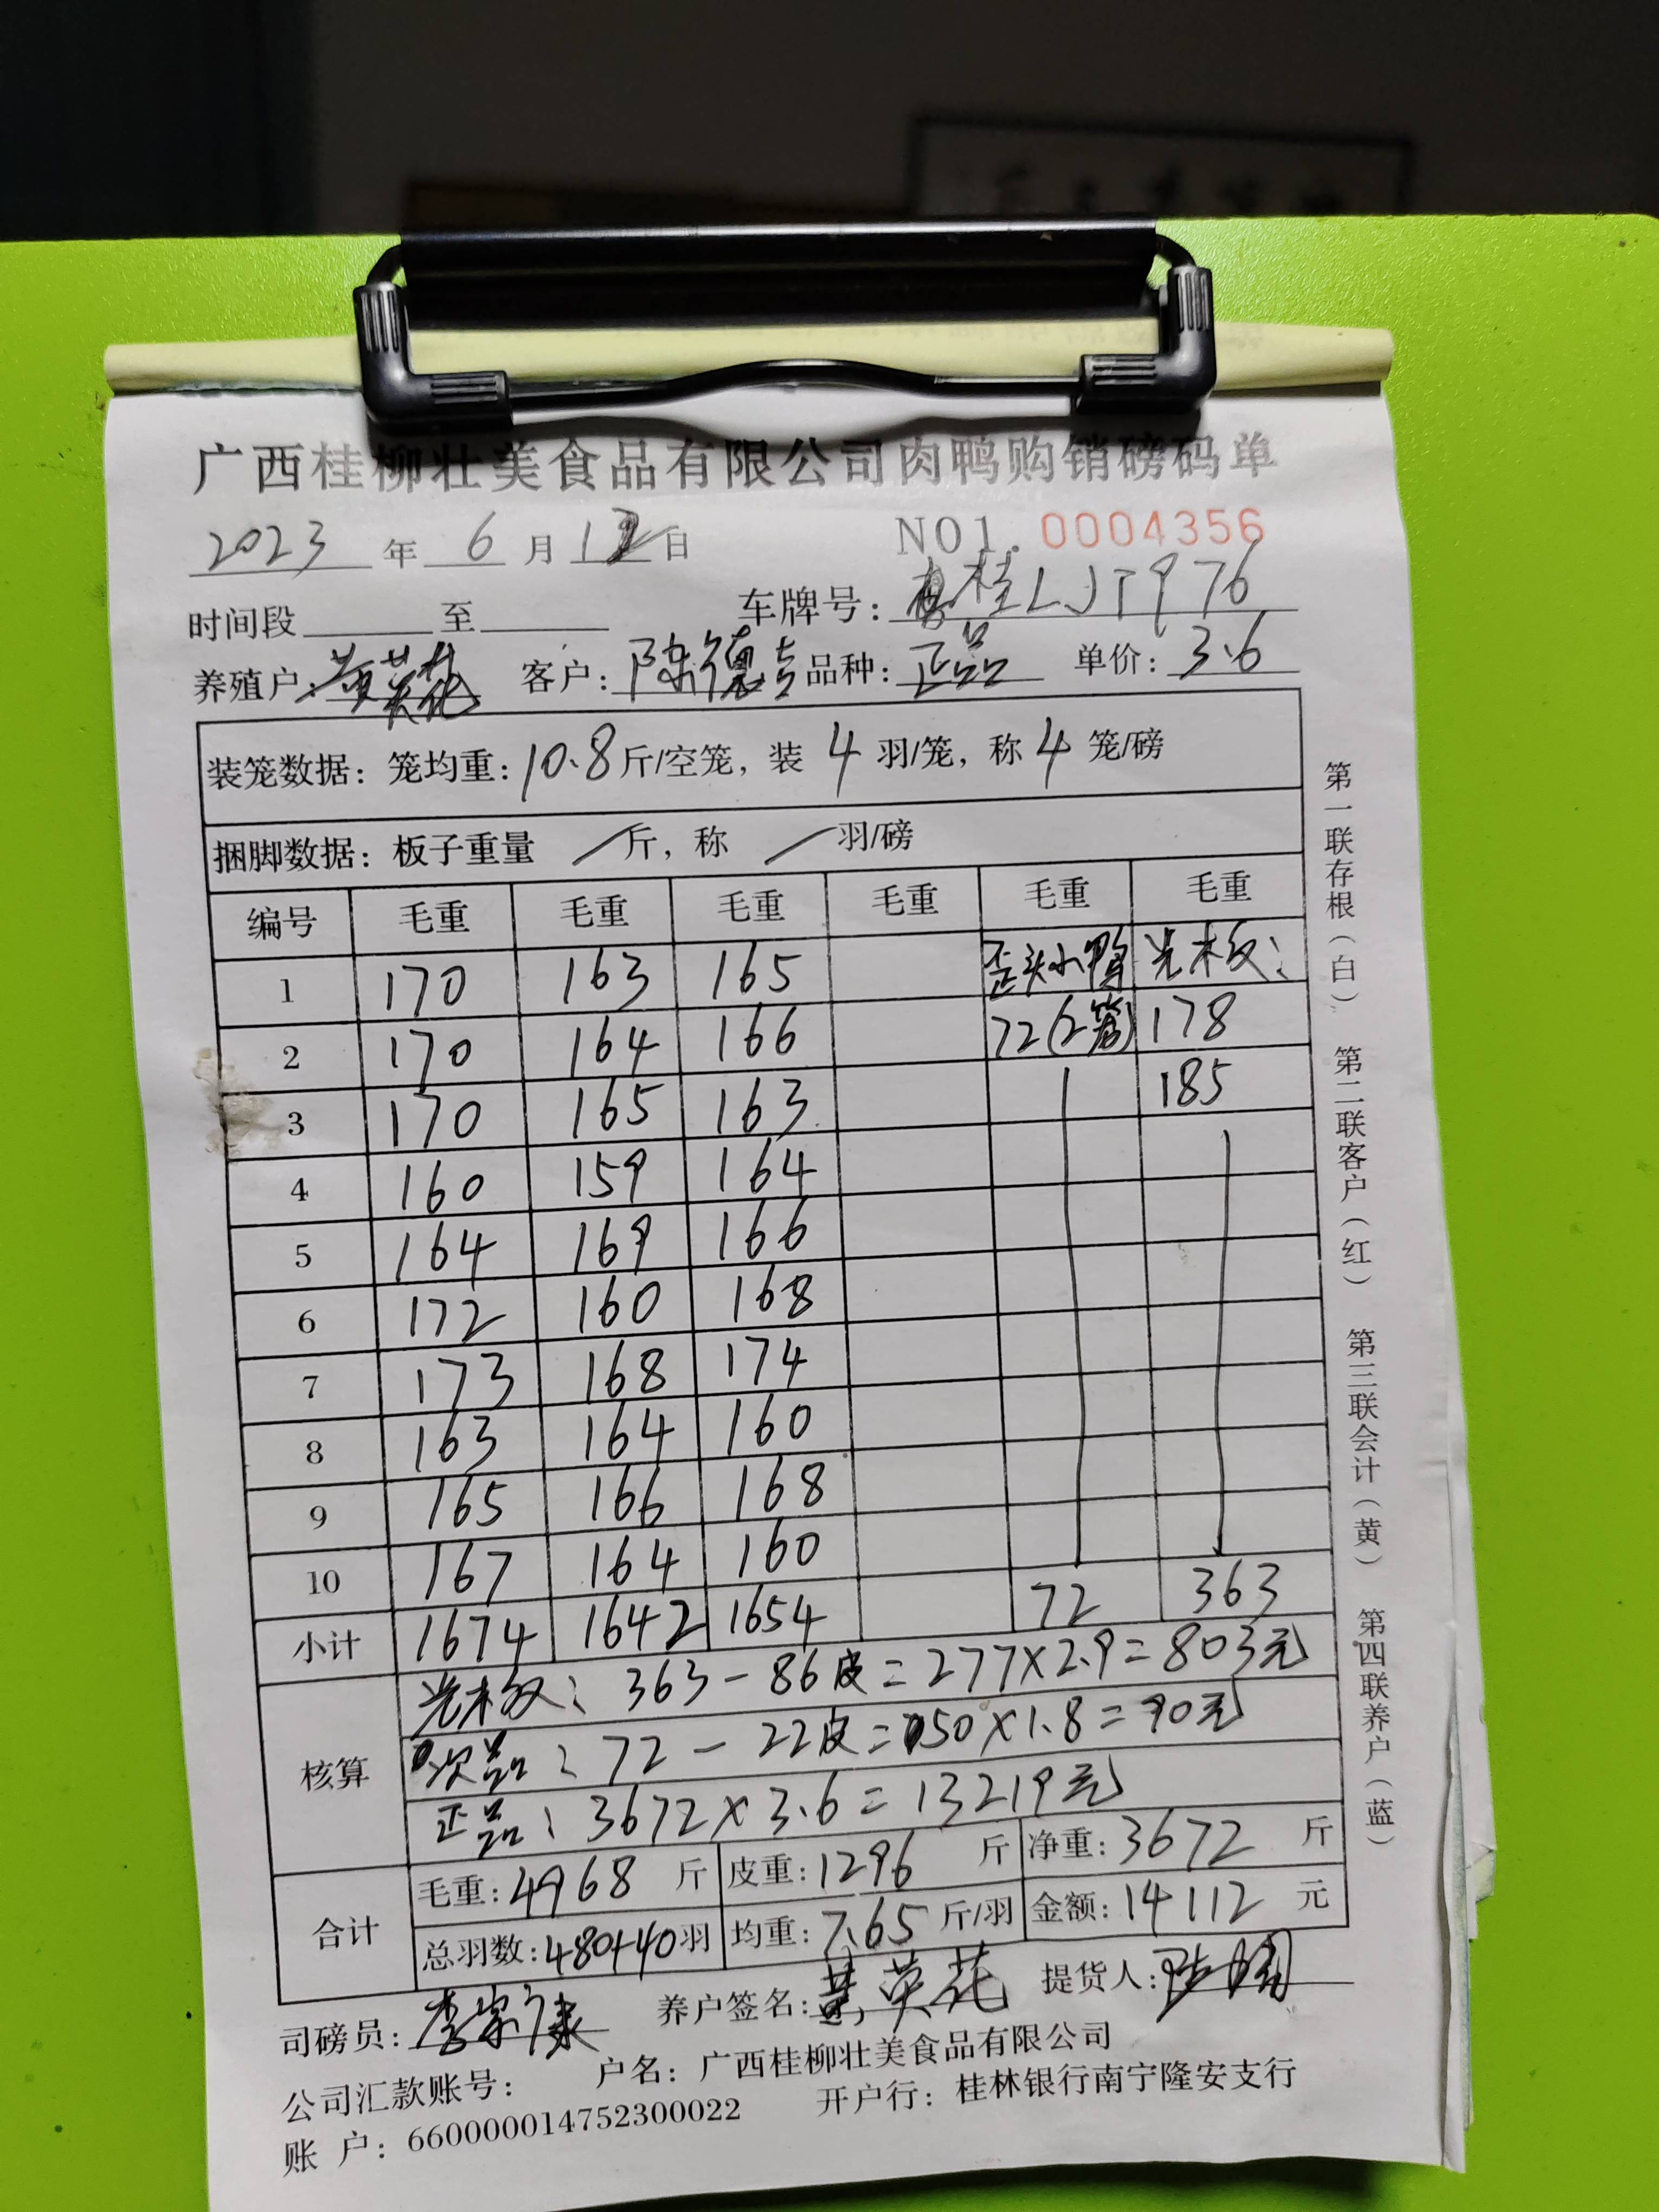 广西桂柳壮美食品有限公司肉鸭购销磅码单
2023 年 6 月 12 日 NO1. 0004356
时间段 至 车牌号: 桂LJT976
养殖户: 黄英花 客户: 陈德吉 品种: 正品 单价: 3.6
装笼数据: 笼均重: 10.8 斤/空笼, 装 4 羽/笼, 称 4 笼/磅
捆脚数据: 板子重量 / 斤, 称 / 羽/磅
编号 毛重 毛重 毛重 毛重 毛重 毛重
1 170 163 165 歪头小鸭 光木级:
2 170 164 166 72(2笼) 178
3 170 165 163 185
4 160 159 164
5 164 169 166
6 172 160 168
7 173 168 174
8 163 164 160
9 165 166 168
10 167 164 160
小计 1674 1642 1654 72 363
核算
光木级: 363-86皮=277×2.9=803元
次品: 72-22皮=50×1.8=90元
正品: 3672×3.6=13219元
合计
毛重: 4968 斤 皮重: 1296 斤 净重: 3672 斤
总羽数: 480+40 羽 均重: 7.65 斤/羽 金额: 14112 元
司磅员: 李宗康 养户签名: 黄英花 提货人:
公司汇款账号: 户名: 广西桂柳壮美食品有限公司
账 户: 660000014752300022 开户行: 桂林银行南宁隆安支行
第一联存根(白) 第二联客户(红) 第三联会计(黄) 第四联养户(蓝)